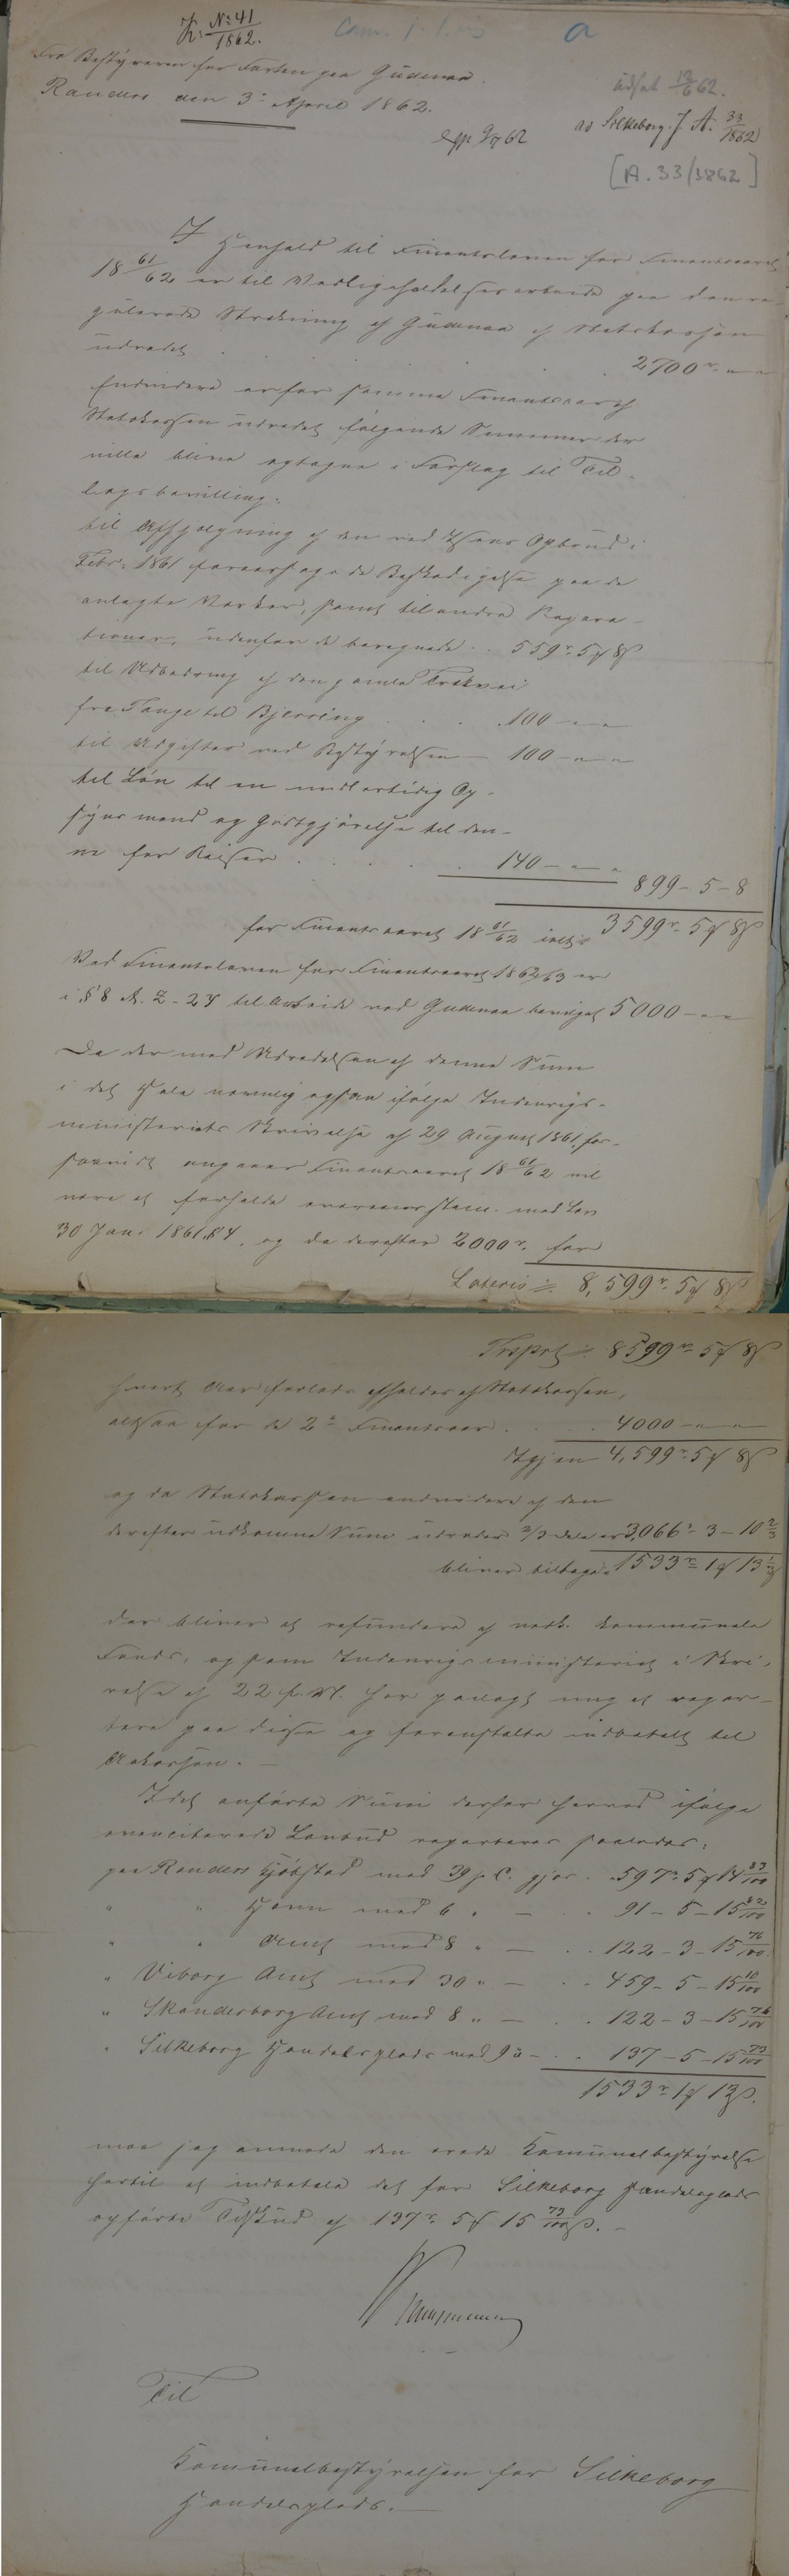 K: No 41
1862.
a
Fra Bestyreren for Farten paa Gudenaa.
Randers den 3die April 1862.
udsat 12/6 62.
ad Silkeborg J. A. 33/1862
exp 9/7 62
[A. 33/1862]
I Henhold til Finantsloven for Finantsaaret
18 61/62 er til Vedligeholdelsesarbeide paa den re-
gulerede Strækning af Gudenaa af Statskassen
udredet . . . . . . 2700 rd " "
Endvidere er for samme Finantsaar af
Statskassen udredet følgende Summer der
ville blive optagne i Forslag til Til-
lægsbevilling:
til Afhjælpning af den ved Isens Opbrud i
Febr: 1861 foraarsagede Beskadigelse paa de
anlagte Værker, samt til andre Repara-
tioner, udenfor de beregnede . . 559 rd 5 ß 8 ß
til Udbedring af den gamle Trækvei
fra Tange til Bjerring . . . . 100 - " - "
til Udgifter ved Bestyrelsen — 100 - " - "
til Løn til en midlertidig Op-
synsmand og Godtgjørelse til den-
ne for Reiser . . . . . 140 - " - "
899 - 5 - 8
for Finantsaaret 18 61/62 ialt: 3599 rd 5 ß 8 ß
Ved Finantsloven for Finantsaaret 1862/63 er
i § 8 A. 2 - 24 til Arbeide ved Gudenaa bevilget 5000 - " "
Da der med Udredelsen af denne Sum
i det Hele nemlig ogsaa ifølge Indenrigs-
ministeriets Skrivelse af 29 August 1861, for-
saavidt angaaer Finantsaaret 18 61/62 vil
være at forholde overeensstem. med Lov
30 Jan: 1861, § 4, og da derefter 2000 rd for
Lateris ∺ 8,599 rd 5 ß 8 ß
Trsprt ∺ 8599 rd 5 ß 8 ß
hvert Aar forlods afholdes af Statskassen,
altsaa for de 2de Finantsaar . . . . 4000 - " - "
Igjen 4,599 rd 5 ß 8 ß
og da Statskassen endvidere af den
derefter udkomne Sum udreder 2/3 dele er 3,066 rd 3 - 10 2/3
bliver tilbage: 1533 rd 1 ß 13 1/3 ß
der bliver at refundere af vedk. kommunale
Fonds, og som Indenrigsministeriet i Skri-
velse af 22 f. M. har paalagt mig at repar-
tere paa disse og foranstalte indbetalt til
Aakassen. —
Idet anførte Sum derfor herved ifølge
ovenciterede Lovbud reparteres saaledes:
paa Randers Kjøbstad med 39 p. C. gjør . 597 rd 5 ß 14 83/100
" " Havn med 6 " — . . 91 - 5 - 15 82/100
" " Amt med 8 " — . . 122 - 3 - 15 76/100
" Viborg Amt med 30 " — . . 459 - 5 - 15 10/100
" Skanderborg Amt med 8 " — . . 122 - 3 - 15 76/100
" Silkeborg Handelsplads med 9 " — . . 137 - 5 - 15 73/100
1533 rd 1 ß 13 ß.
maa jeg anmode den ærede Komunalbestyrelse
hertil at indbetale det for Silkeborg Handelsplads
opførte Tilskud af 137 rd 5 ß 15 73/100 ß. —
Til
Komunalbestyrelsen for Silkeborg
Handelsplads. —